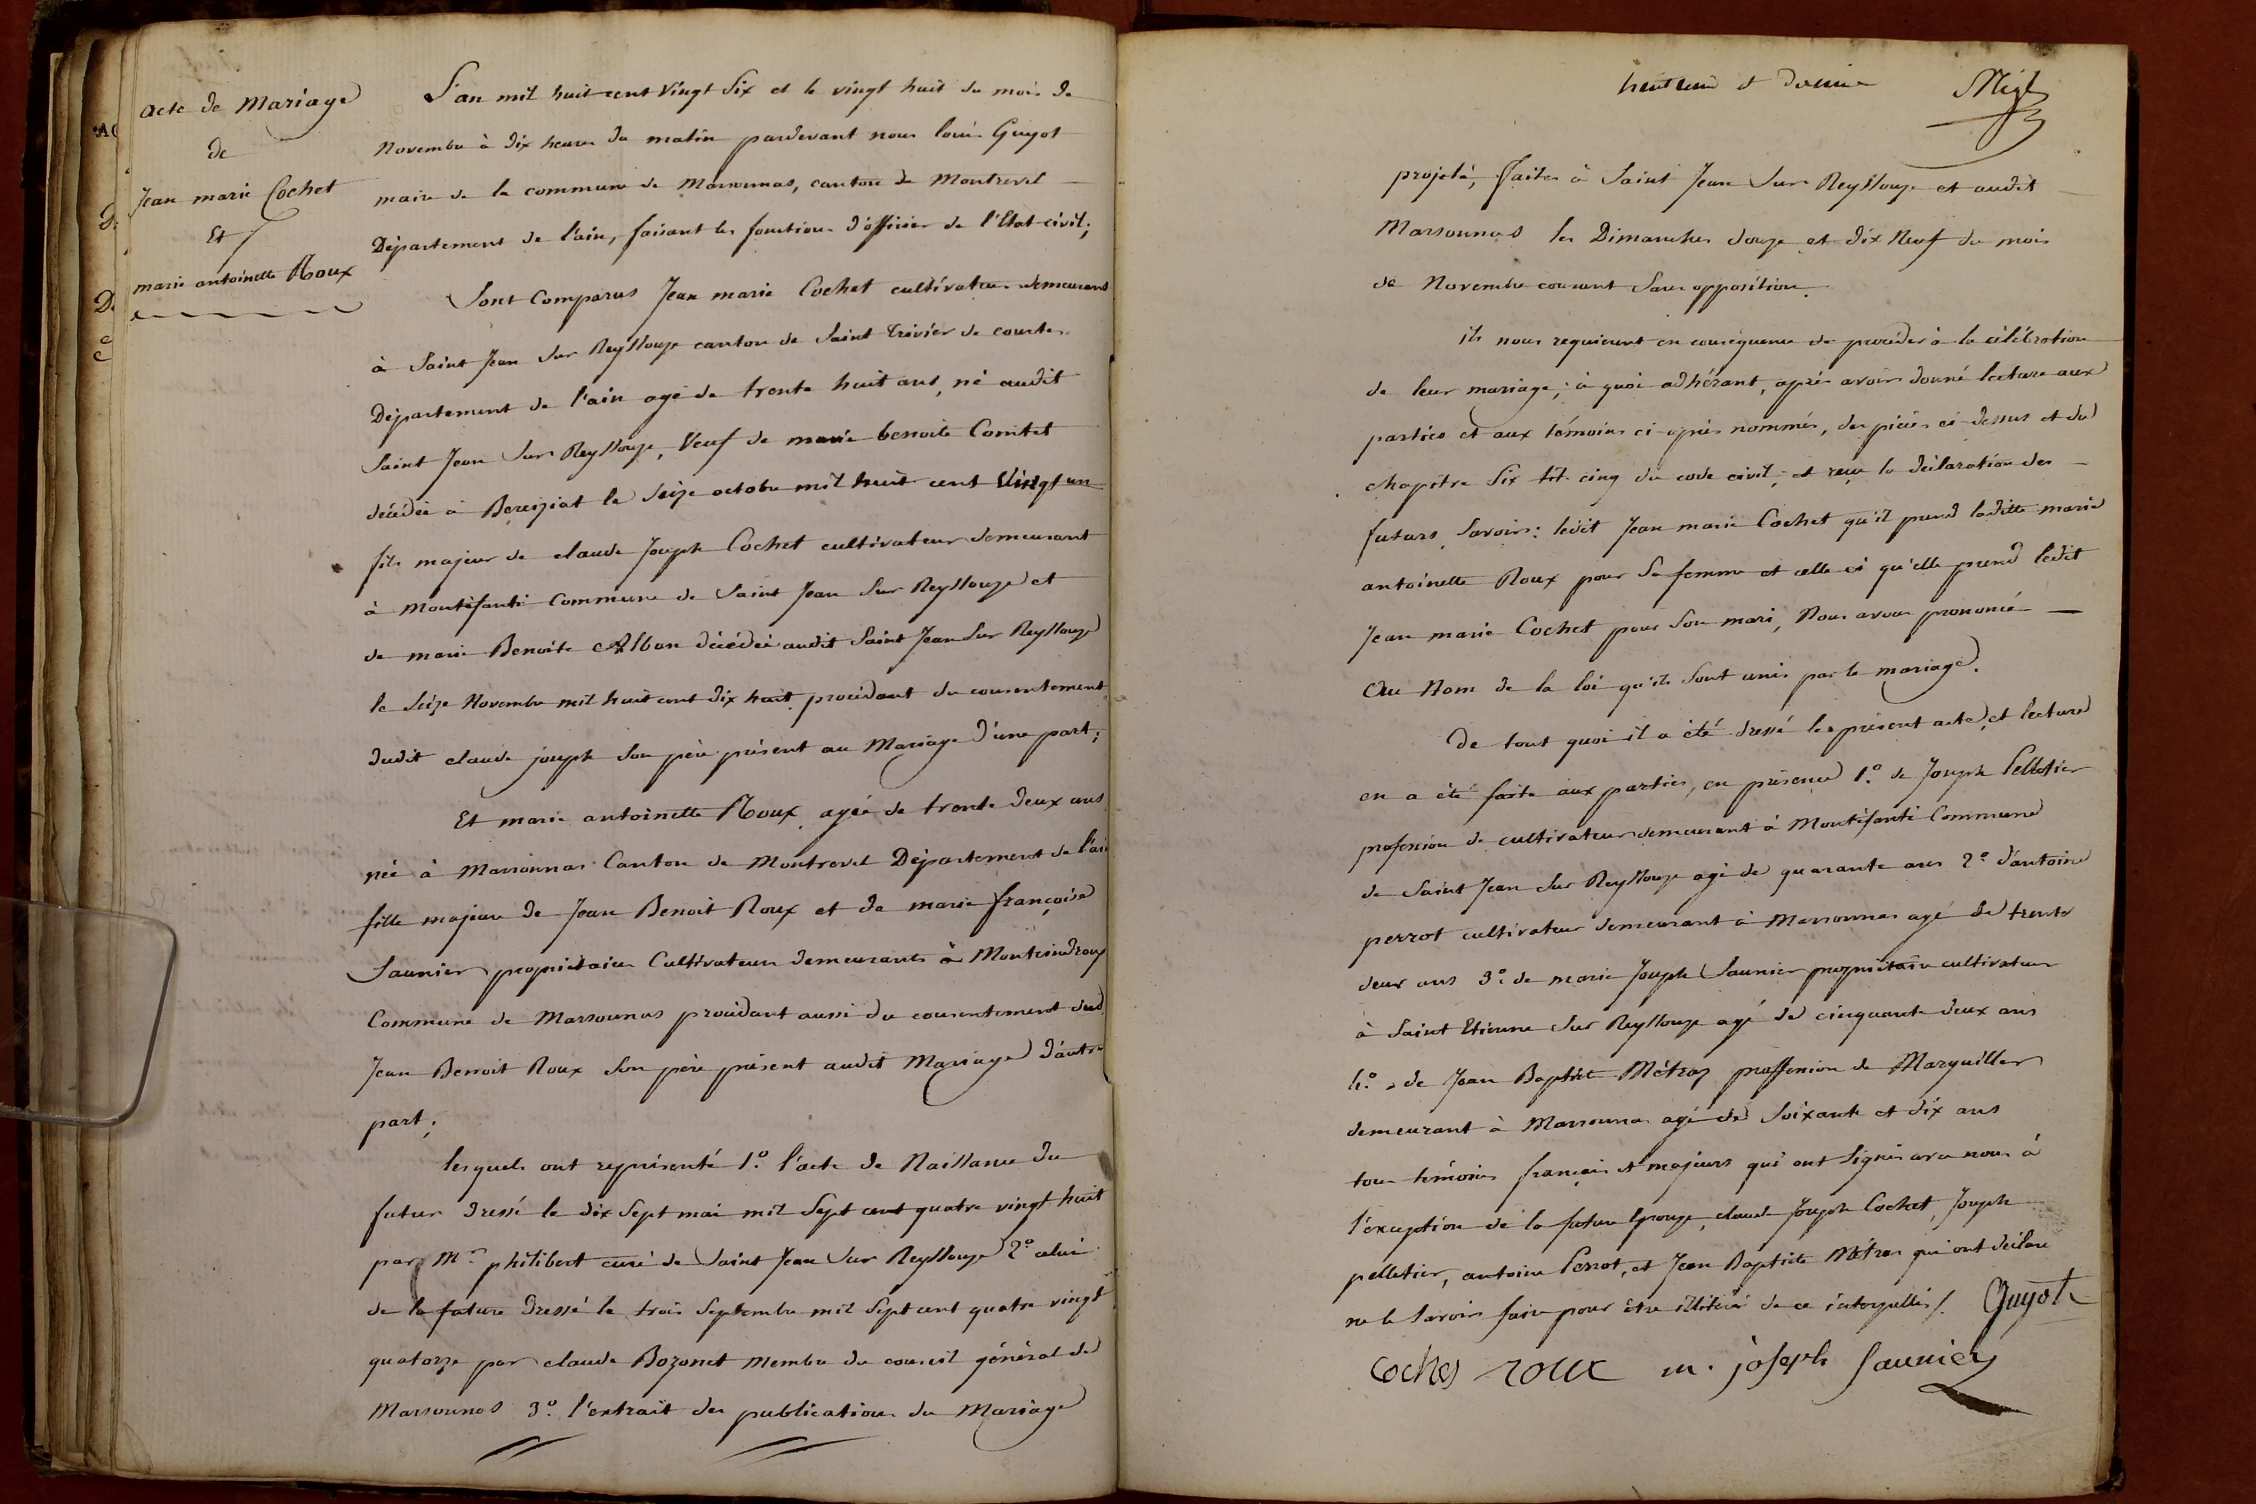 acte de Mariage
de
Jean marie Cochet
Et
marie antoinette Roux
L'an mil huit cent vingt Six et le vingt huit du mois de
Novembre à dix heures du matin pardevant nous louis Guyot
maire de la commune de Marsonnas, canton de Montrevel
Département de l'ain, faisant les fonctions d'officier de l'Etat-civil;
Sont Comparus Jean marie Cochet cultivateur demeurant
à Saint Jean Sur Reyssouze canton de Saint Trivier de courtes
Département de l'ain agé de trente huit ans, né audit
Saint Jean Sur Reyssouze, Veuf de marie benoite Comtet
décédée à Bereiziat le Seize octobre mil huit cent Vingt un
fils majeur de claude Joseph Cochet cultivateur demeurant
à Montéfanti Commune de Saint Jean Sur Reyssouze et
de marie Benoite Alban décédée audit Saint Jean Sur Reyssouze
le Seize Novembre mil huit cent dix huit, procédant du consentement
dudit claude joseph Son père présent au Mariage d'une part;
Et marie antoinette Roux agée de trente deux ans
née à Marsonnas Canton de Montrevel Département de l'ain
fille majeure de Jean Benoit Roux et de marie françoise
Saunier propriétaires Cultivateurs demeurants à
Commune de Marsonnas procédant aussi du consentement dud
Jean Benoit Roux Son père présent audit Mariage d'autre
part;
lesquels ont représenté 1.° l'acte de Naissance du
futur dressé le dix Sept mai mil Sept cent quatre vingt huit
par Mr philibert curé de Saint Jean Sur Reyssouze 2.° celui
de la future dressé le trois Septembre mil Sept cent quatre vingt
quatorze par claude Bozonet membre du conseil général de
Marsonnas 3.° l'extrait des publications du Mariage
projeté, faites à Saint Jean Sur Reyssouze et audit
Marsonnas les Dimanches douze et dix Neuf du mois
de Novembre courant Sans opposition.
ils nous requièrent en conséquence de procéder à la célébration
de leur mariage; à quoi adhérant, après avoir donné lecture aux
parties et aux témoins ci-après nommés, des pièces ci-dessus et du
chapitre Six tit. cinq du code civil, et reçu la déclaration des
futurs, Savoir: ledit Jean marie Cochet qu'il prend laditte marie
antoinette Roux pour Sa femme et celle ci qu'elle prend ledit
Jean marie Cochet pour Son mari, Nous avons prononcé
Au Nom de la loi qu'ils Sont unis par le mariage.
De tout quoi il a été dressé le présent acte, et lecture
en a été faite aux parties, en présence 1.° de Joseph Pelletier
profession de cultivateur demeurant à Montéfanti Commune
de Saint Jean Sur Reyssouze agé de quarante ans 2.° d'antoine
perrot cultivateur demeurant à Marsonnas agé de trente
deux ans 3.° de marie Joseph Saunier propriétaire cultivateur
à Saint Etienne Sur Reyssouze agé de cinquante deux ans
4.° de Jean Baptiste Métraz proffession de Marguiller
demeurant à Marsonnas agé de Soixante et dix ans
tous témoins français et majeurs qui ont Signés avec nous à
l'exception de la future Epouze, claude Joseph Cochet, Joseph
pelletier, antoine Perrot, et Jean Baptiste Métras qui ont déclaré
ne le Savoir faire pour être illitéré de ce interpellés/. Guyot
Coches roux m. joseph Saunier